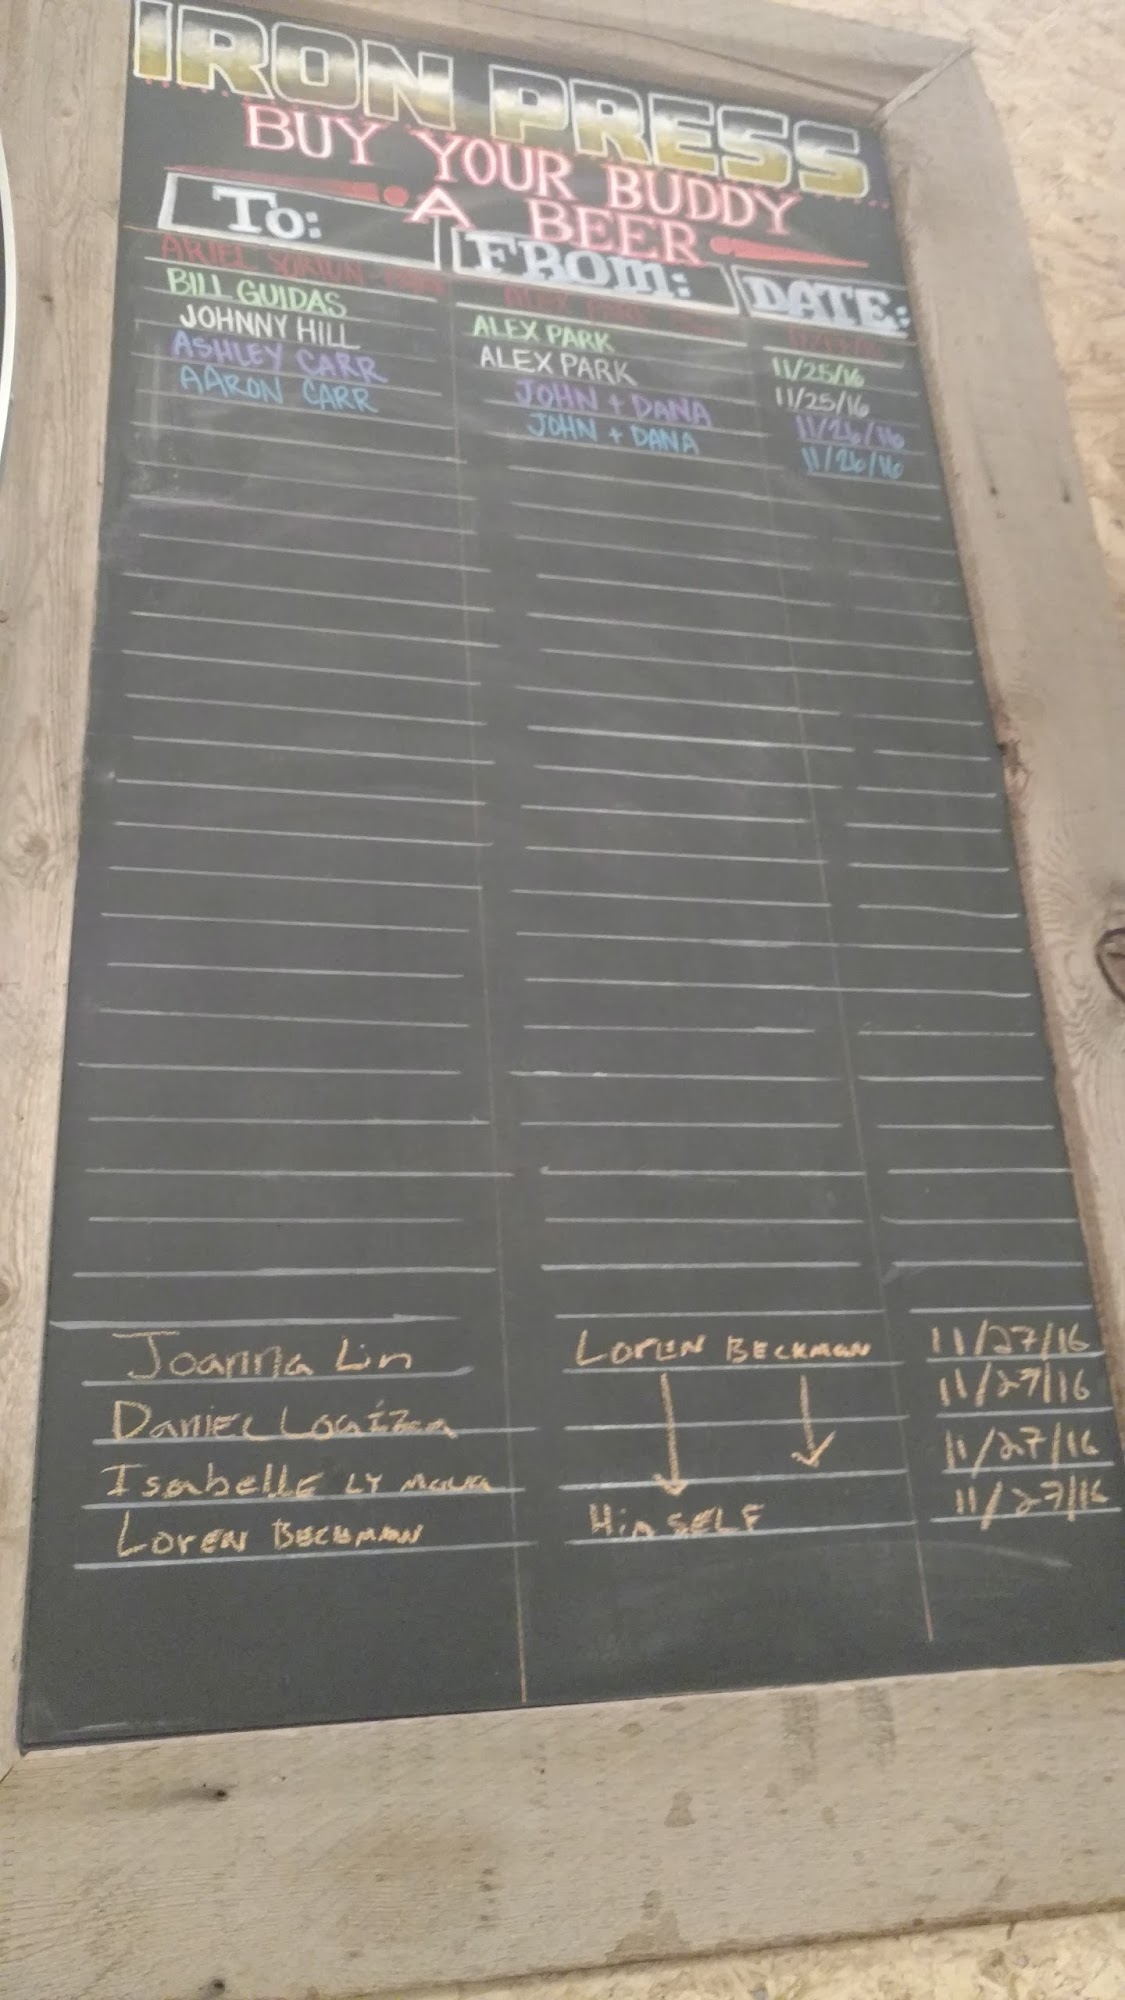 IRON PRESS
BUY YOUR BUDDY
A BEER
To: FROM: DATE:
ARIEL ALEX PARK
BILL GUIDAS ALEX PARK 11/25/16
JOHNNY HILL ALEX PARK 11/25/16
ASHLEY CARR JOHN + DANA 11/26/16
AARON CARR JOHN + DANA 11/26/16
Joanna Lin LOREN BECKMAN 11/27/16
DANIEL 11/27/16
IsabellE LY 11/27/16
LOREN BECKMAN HimSELF 11/27/16